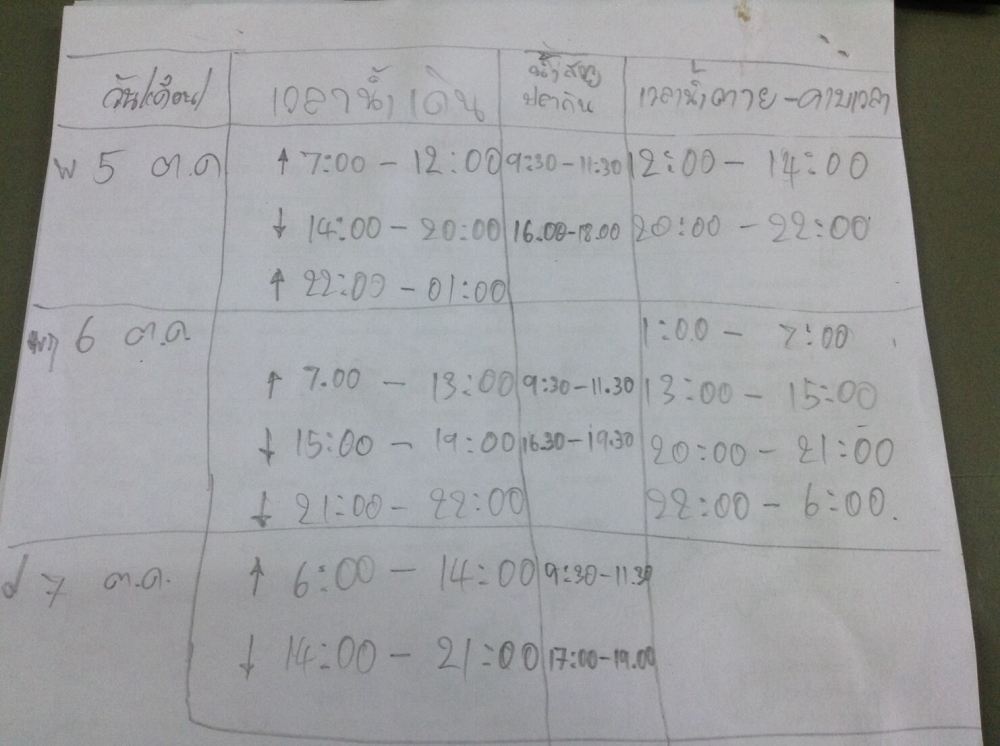 วัน/เดือน เวลาน้ำเดิน น้ำสัญ ปลากิน เวลาน้ำตาย - คาบเวลา
พ 5 ต.ค ↑ 7:00 - 12:00 9:30-11:30 12:00 - 14:00
↓ 14:00 - 20:00 16.00-18.00 20:00 - 22:00
↑ 22:00 - 01:00
พฤ 6 ต.ค. 1:00 - 7:00
↑ 7.00 - 13:00 9:30-11.30 13:00 - 15:00
↓ 15:00 - 19:00 16.30-19.30 20:00 - 21:00
↓ 21:00 - 22:00 22:00 - 6:00.
ศ 7 ต.ค. ↑ 6:00 - 14:00 9:30-11.30
↓ 14:00 - 21:00 17:00-19.00